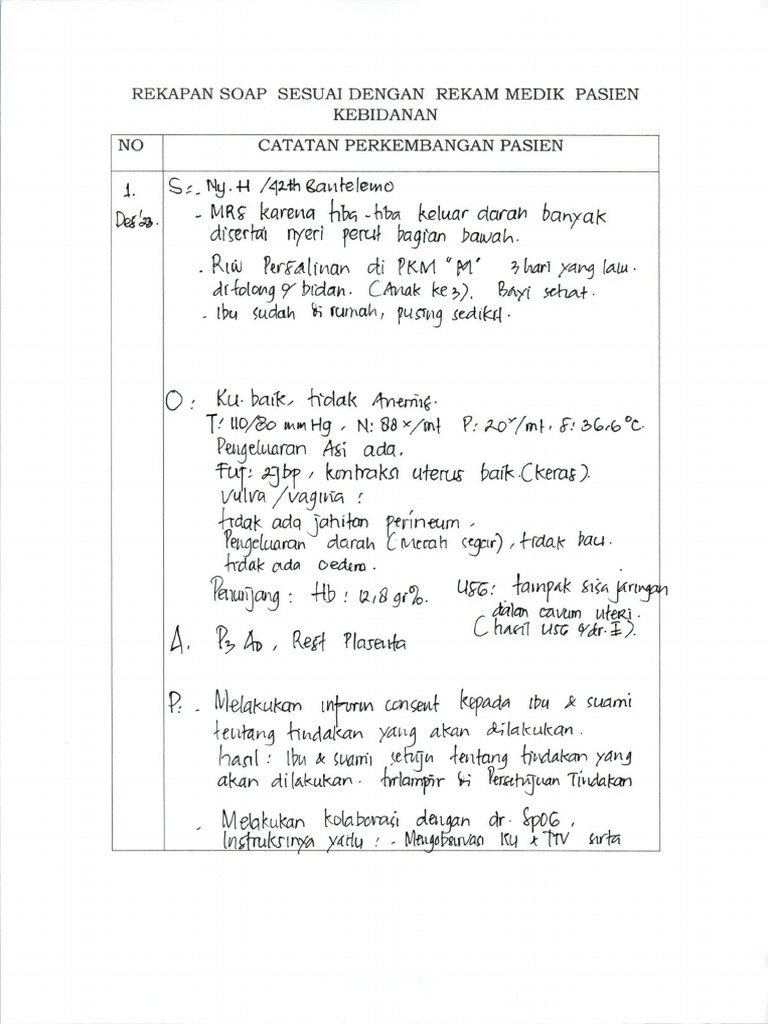 REKAPAN SOAP SESUAI DENGAN REKAM MEDIK PASIEN
KEBIDANAN
NO CATATAN PERKEMBANGAN PASIEN
1. S: - Ny. H /42th Bantelemo
Des'23. - MRS karena tiba-tiba keluar darah banyak
disertai nyeri perut bagian bawah.
- Riw Persalinan di PKM "M" 3 hari yang lalu.
ditolong bidan. (Anak ke 3). Bayi sehat.
- Ibu sudah di rumah, pusing sedikit.
O: Ku. baik, tidak Anemis.
T: 110/80 mmHg, N: 88x/mt P: 20x/mt, S: 36,6°C.
Pengeluaran Asi ada.
Fut: 2jbp, kontraksi uterus baik. (keras).
Vulva/vagina :
tidak ada jahitan perineum,
Pengeluaran darah (Merah segar), tidak bau.
tidak ada oedema.
Penunjang : Hb : 12,8 gr%. USG: tampak sisa jaringan
dalam cavum uteri.
(hasil USG dr. I).
A. P3 A0, Rest Plasenta
P: - Melakukan inform consent kepada ibu & suami
tentang tindakan yang akan dilakukan.
hasil : Ibu & suami setuju tentang tindakan yang
akan dilakukan. terlampir di Persetujuan Tindakan
- Melakukan kolaborasi dengan dr. SpOG,
Instruksinya yaitu : - Mengobservasi KU & TTV serta